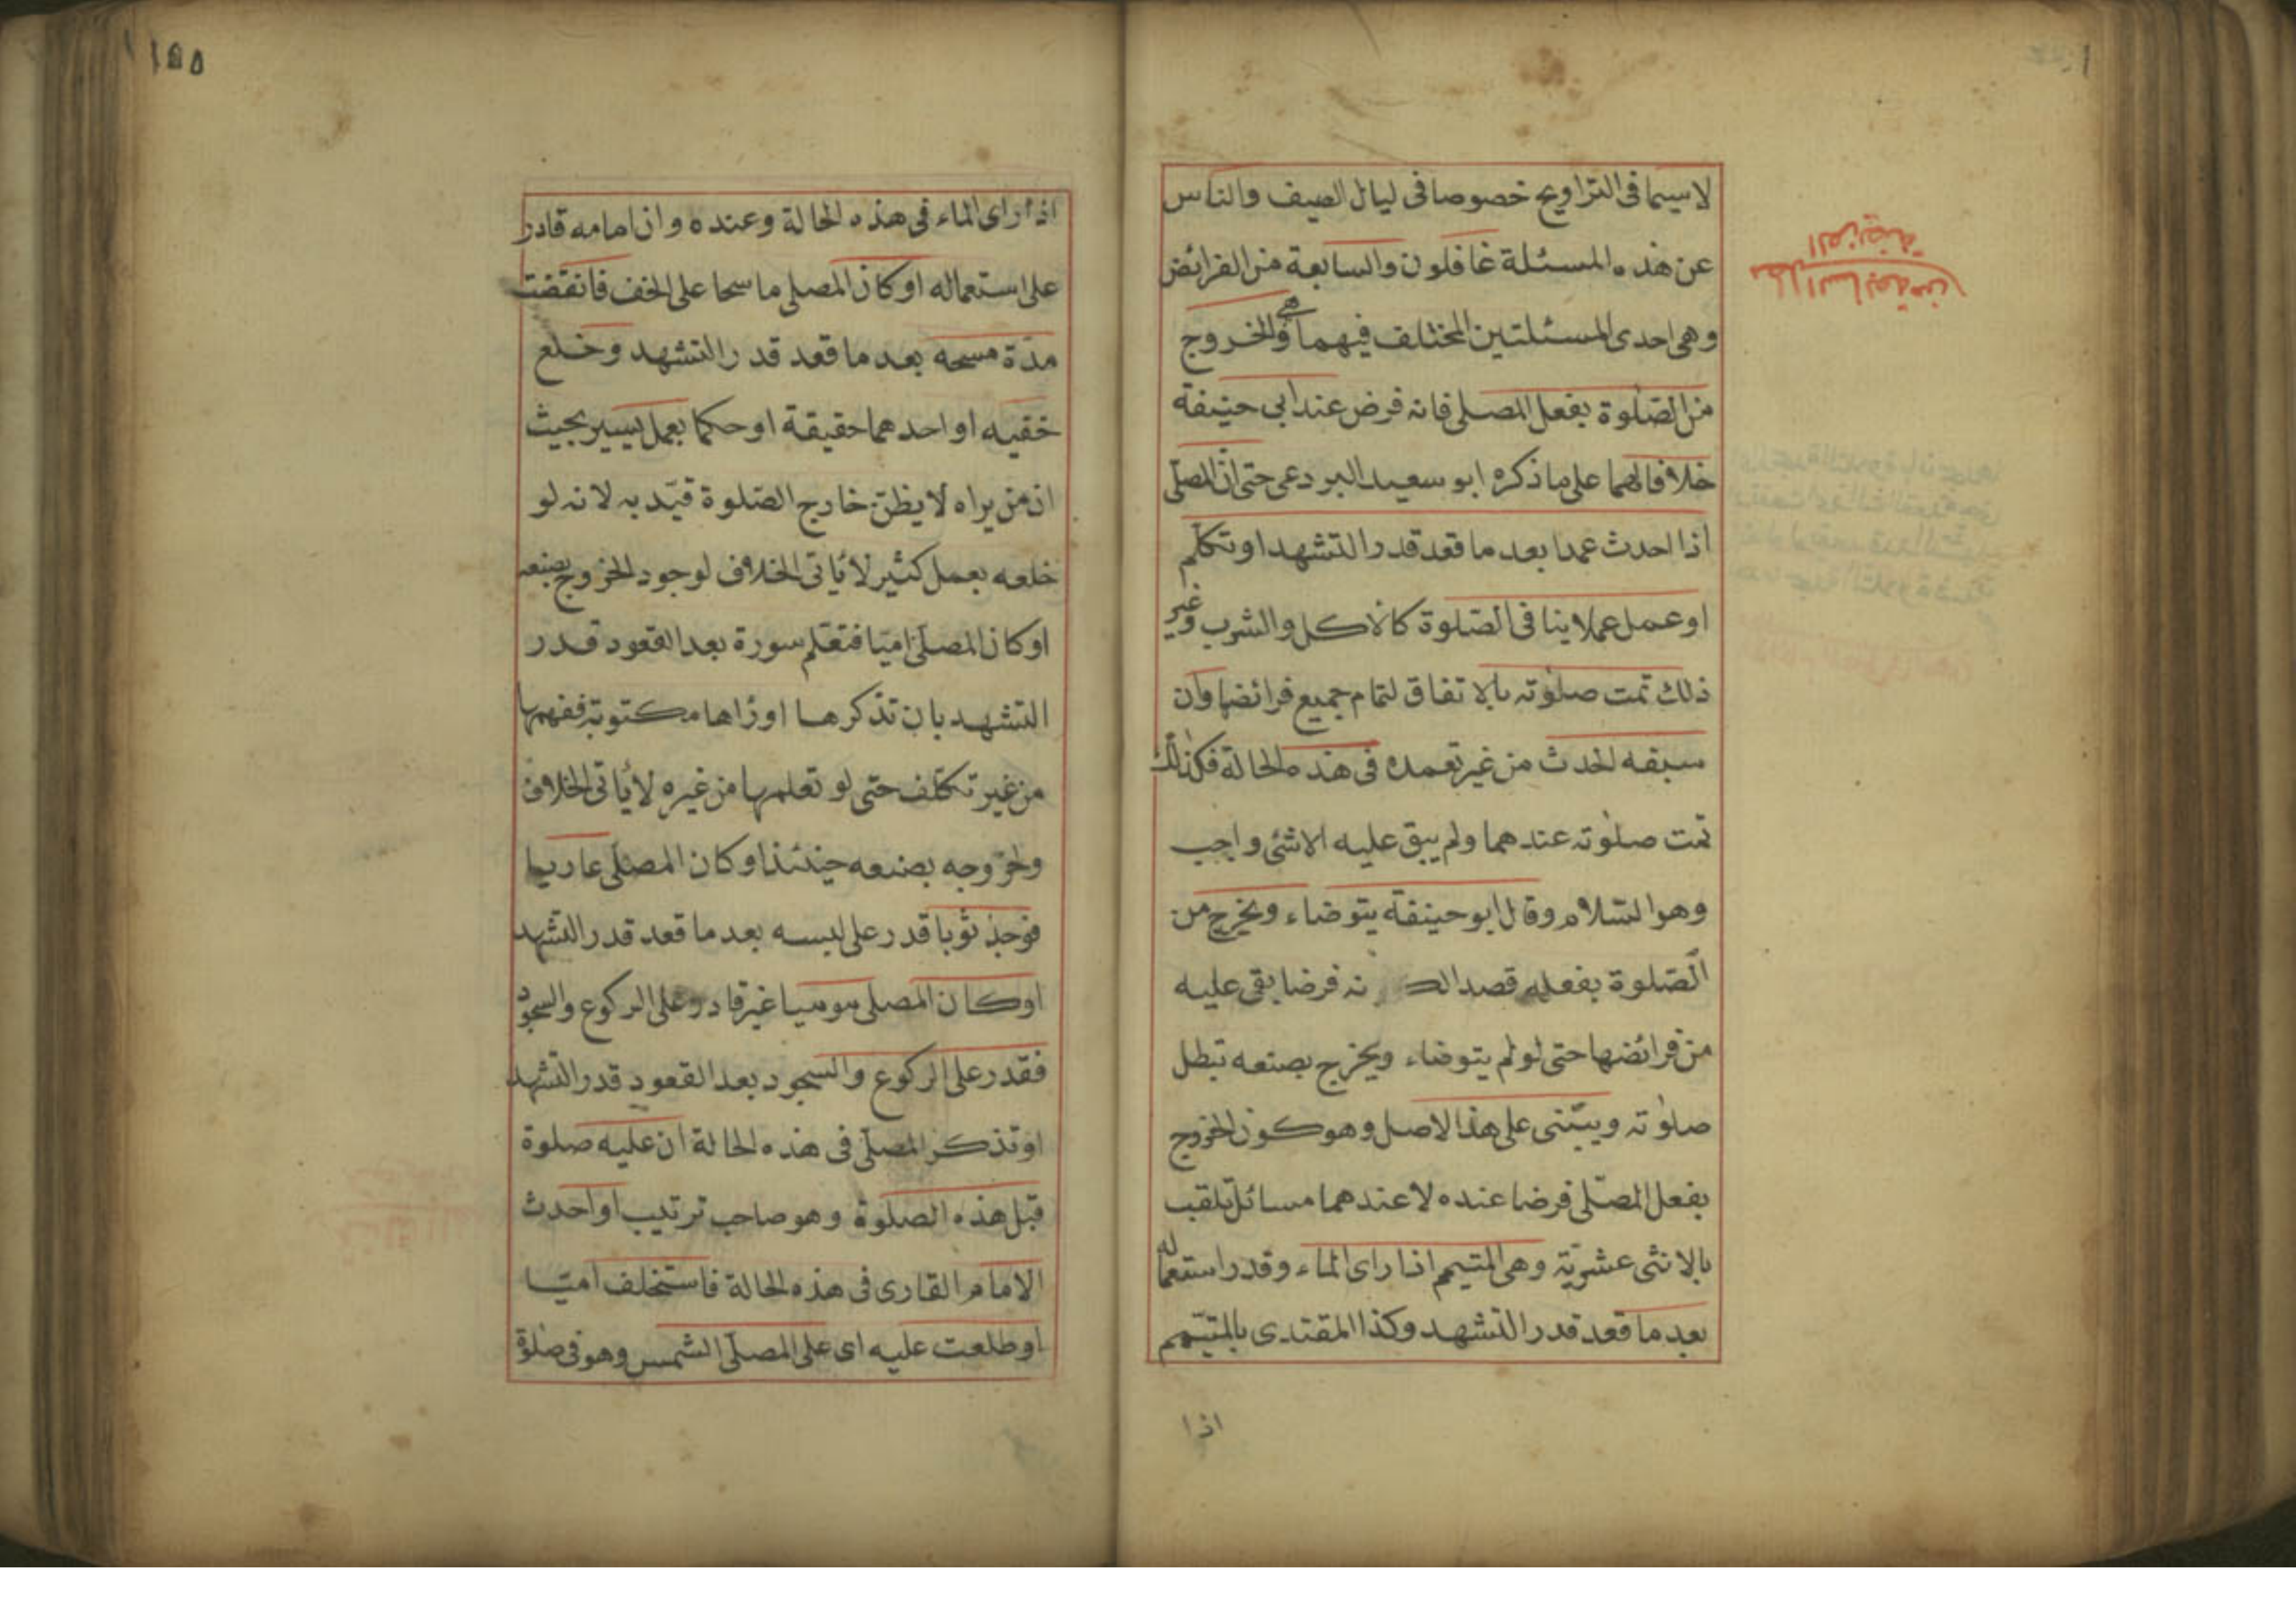 لاسيما فى التراويح خصوصا فى ليال الصيف والناس
عن هذه المسئلة غافلون والسابعة من الفرائض
وهى احدى المسئلتين المختلف فيهما هى والخروج
من الصلوة بفعل المصلى فانه فرض عند ابى حنيفة
خلافا لهما على ما ذكره ابو سعيد البردعى حتى ان المصلى
اذا احدث عمدا بعد ما قعد قدر التشهد او تكلم
او عمل عملا ينافى الصلوة كالاكل والشرب وغير
ذلك تمت صلوته بالاتفاق لتمام جميع فرائضها وان
سبقه الحدث من غير تعمده فى هذه الحالة فكذلك
تمت صلوته عندهما ولم يبق عليه الا شئ واجب
وهو السلام وقال ابو حنيفة يتوضاء ويخرج من
الصلوة بفعله قصدا نه فرضا بقى عليه
من فرائضها حتى لو لم يتوضاء ويخرج بصنعه تبطل
صلوته ويبتنى على هذا الاصل وهو كون الخروج
بفعل المصلى فرضا عنده لا عندهما مسائل تلقب
بالاثنى عشرية وهى المتيمم اذا راى الماء وقدر استعماله
بعد ما قعد قدر التشهد وكذا المقتدى بالمتيمم
اذا
١٥٥
اذا راى الماء فى هذه الحالة وعنده وان امامه قادر
على استعماله او كان المصلى ماسحا على الخف فانقضت
مدة مسحه بعد ما قعد قدر التشهد وخلع
خفيه او احدهما حقيقة او حكما بعمل يسير بحيث
ان من يراه لا يظن خارج الصلوة قيد به لانه لو
خلعه بعمل كثير لا ياتى الخلاف لوجود الخروج بصنعه
او كان المصلى اميا فتعلم سورة بعد القعود قدر
التشهد بان تذكرها او راها مكتوبة ففهمها
من غير تكلف حتى لو تعلمها من غيره لا ياتى الخلاف
وخروجه بصنعه حينئذ او كان المصلى عاريا
فوجد ثوبا قدر على لبسه بعد ما قعد قدر التشهد
او كان المصلى موميا غير قادر على الركوع والسجود
فقدر على الركوع والسجود بعد القعود قدر التشهد
او تذكر المصلى فى هذه الحالة ان عليه صلوة
قبل هذه الصلوة وهو صاحب ترتيب او احدث
الامام القارى فى هذه الحالة فاستخلف اميا
او طلعت عليه اى على المصلى الشمس وهو فى صلوة